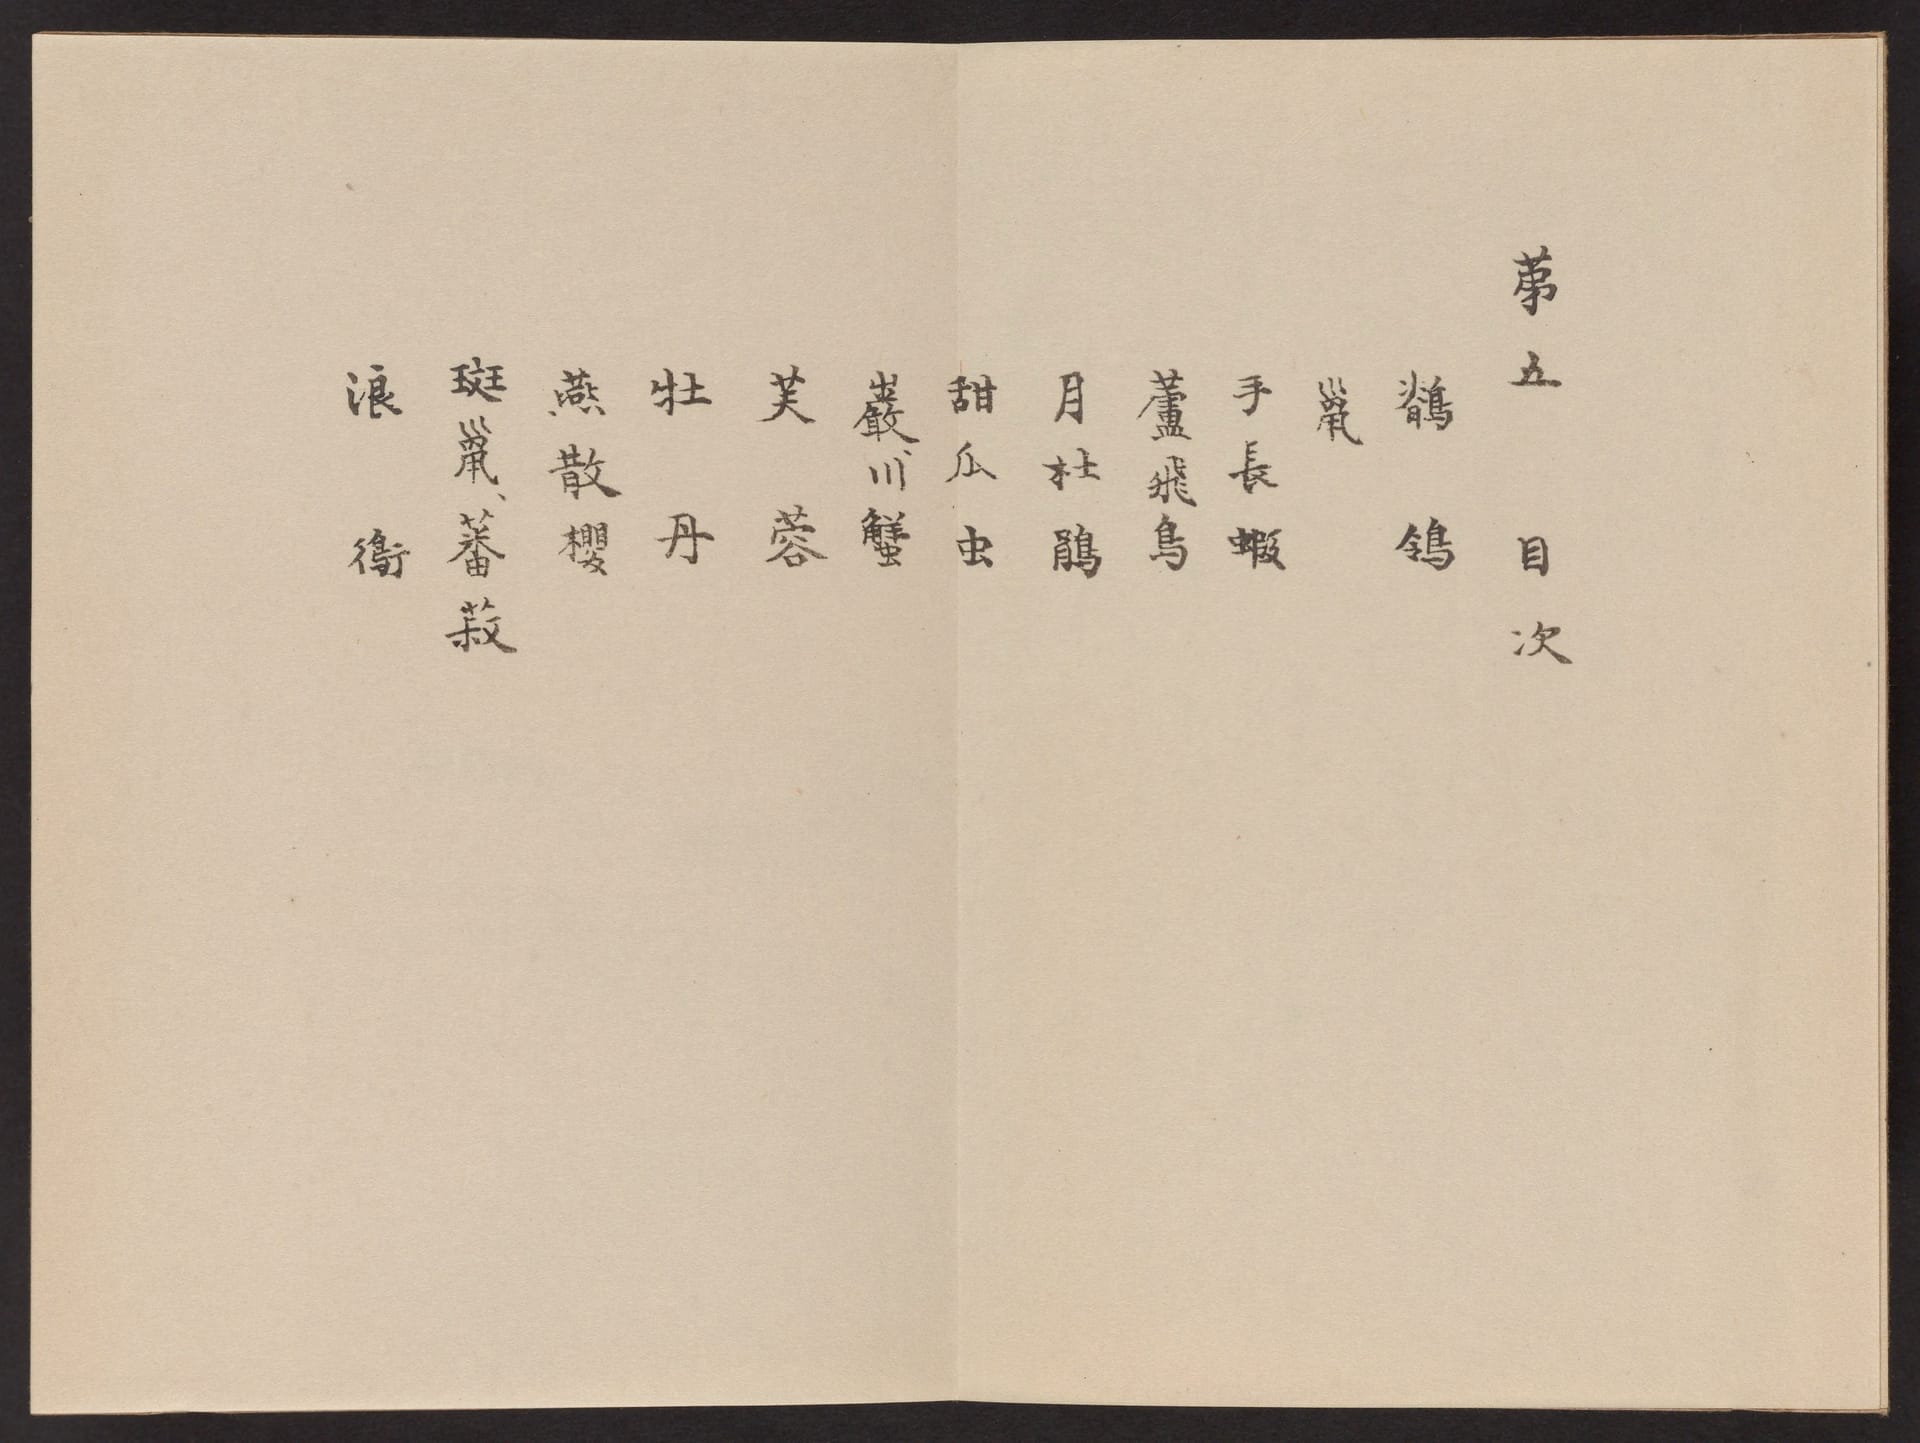 第五 目次
鶺鴒
巤
手長蝦
蘆飛鳥
月杜鵑
甜瓜虫
巖、川蟹
芙蓉
牡丹
燕散櫻
斑巤、蕃菽
浪鵆